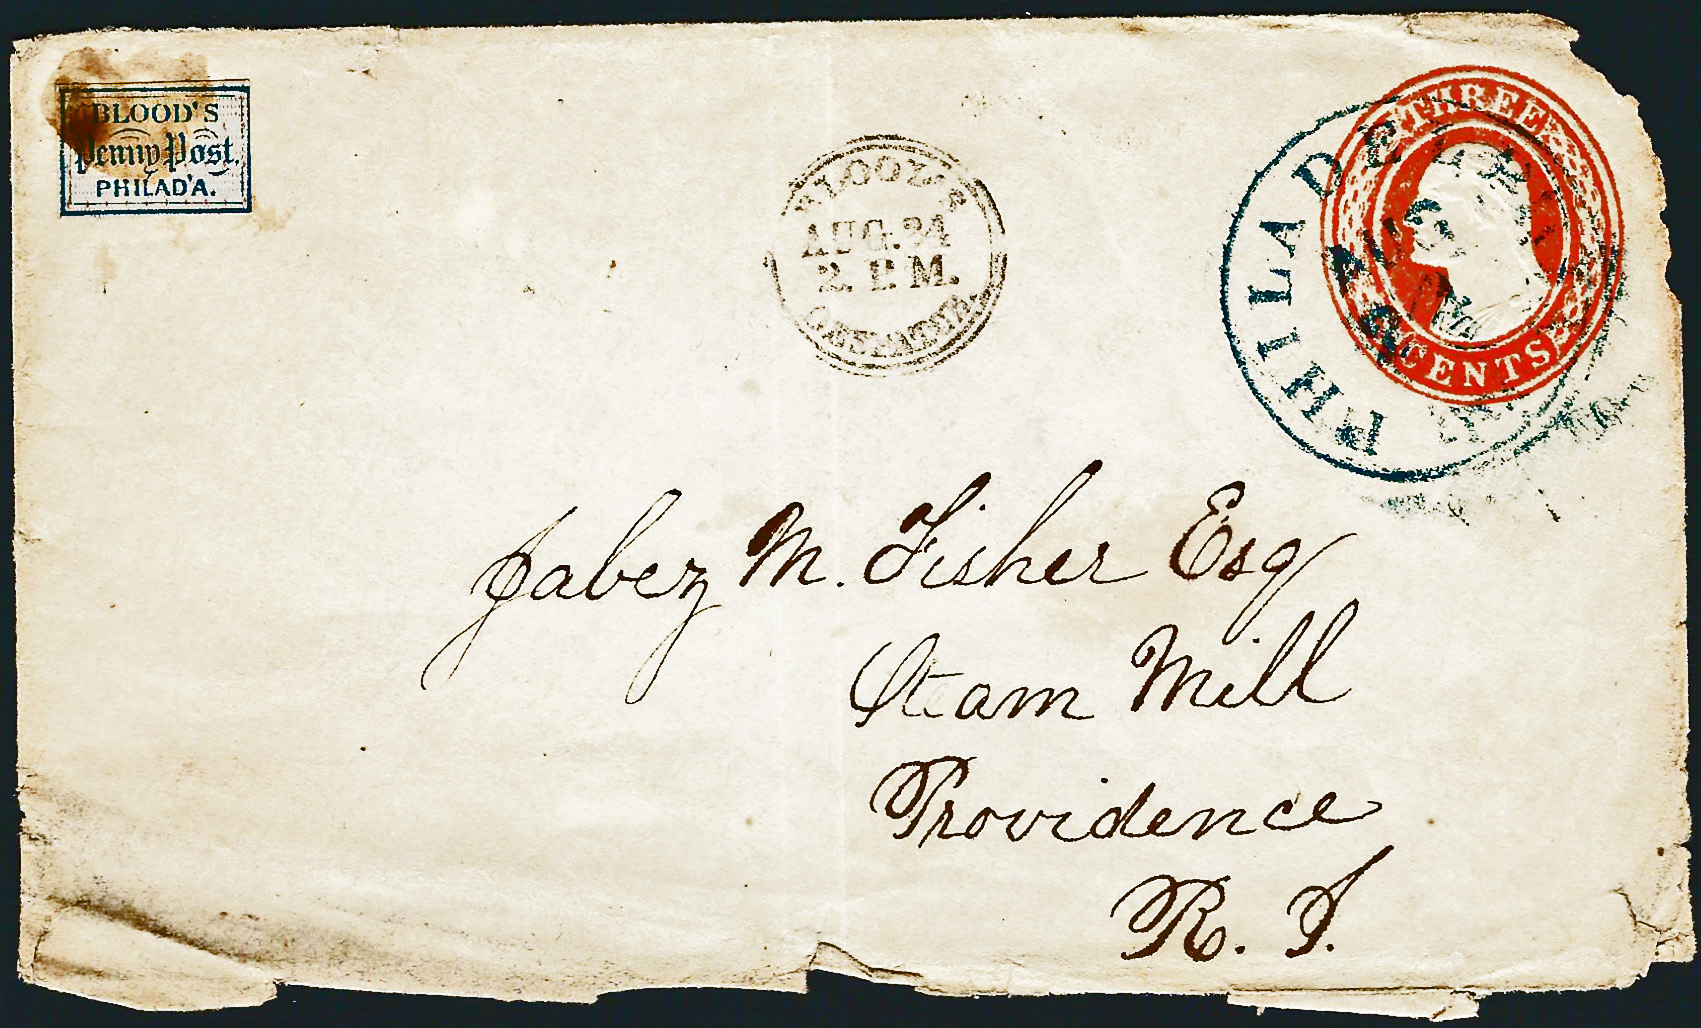 BLOOD'S
Penny Post,
PHILAD'A.
BLOOD'S
AUG. 24
2. P. M.
DESPATCH.
THREE
CENTS
PHILADELPHIA
AUG
Jabez M. Fisher Esq
Steam Mill
Providence
R. I.